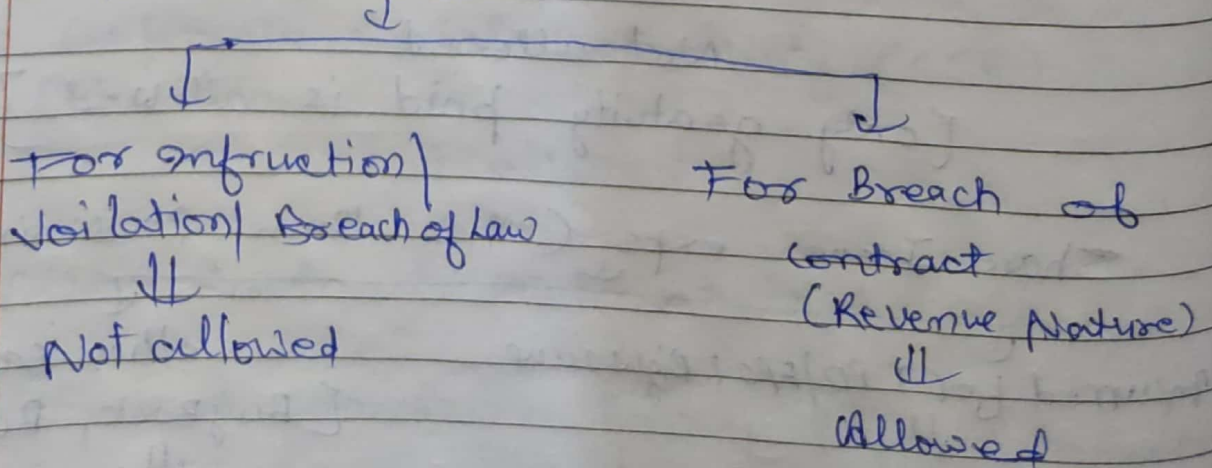 For Infruction/
Voilation/ Breach of Law
⇓
Not allowed
For Breach of
Contract
(Revenue Nature)
⇓
Allowed